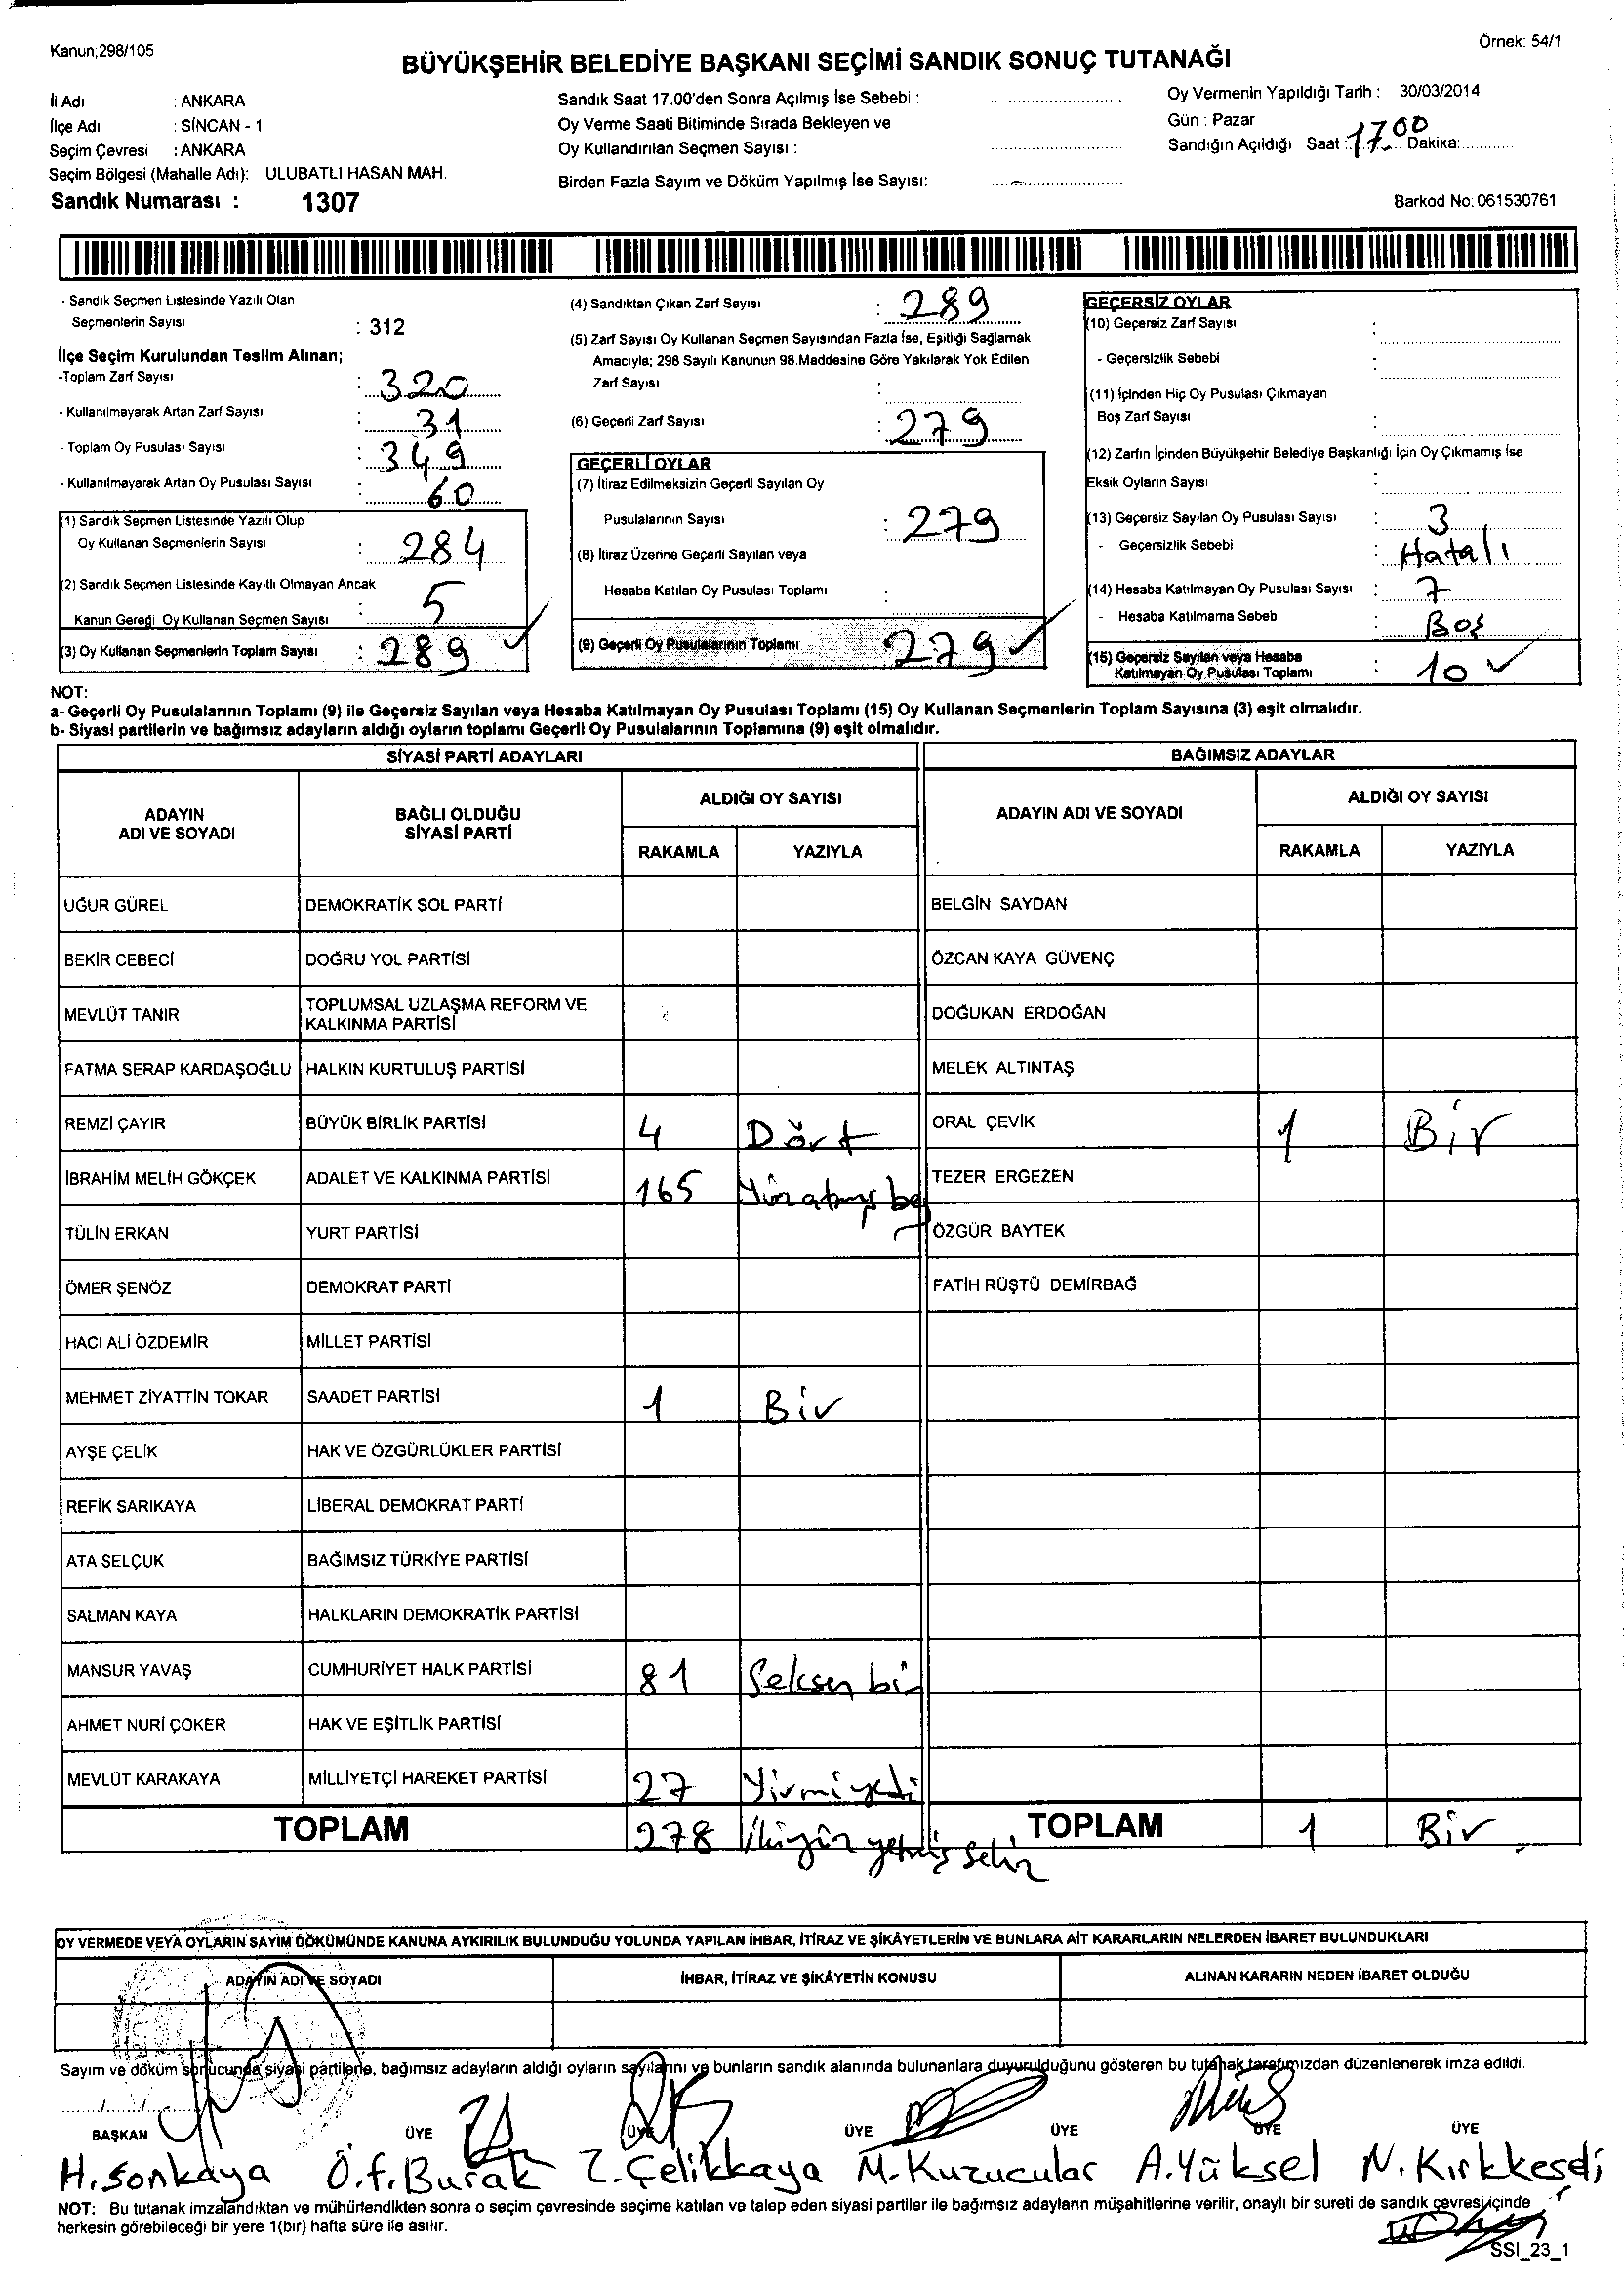 Kanun;298/105
Örnek: 54/1
BÜYÜKŞEHİR BELEDİYE BAŞKANI SEÇİMİ SANDIK SONUÇ TUTANAĞI
İl Adı : ANKARA
İlçe Adı : SİNCAN - 1
Seçim Çevresi : ANKARA
Seçim Bölgesi (Mahalle Adı): ULUBATLI HASAN MAH.
Sandık Numarası : 1307
Sandık Saat 17.00'den Sonra Açılmış İse Sebebi :
Oy Verme Saati Bitiminde Sırada Bekleyen ve
Oy Kullandırılan Seçmen Sayısı :
Birden Fazla Sayım ve Döküm Yapılmış İse Sayısı:
Oy Vermenin Yapıldığı Tarih : 30/03/2014
Gün : Pazar
Sandığın Açıldığı Saat : 17.00 Dakika:
Barkod No: 061530761
- Sandık Seçmen Listesinde Yazılı Olan
Seçmenlerin Sayısı : 312
İlçe Seçim Kurulundan Teslim Alınan;
-Toplam Zarf Sayısı : 320
- Kullanılmayarak Artan Zarf Sayısı : 31
- Toplam Oy Pusulası Sayısı : 349
- Kullanılmayarak Artan Oy Pusulası Sayısı : 60
(1) Sandık Seçmen Listesinde Yazılı Olup
Oy Kullanan Seçmenlerin Sayısı : 284
(2) Sandık Seçmen Listesinde Kayıtlı Olmayan Ancak
Kanun Gereği Oy Kullanan Seçmen Sayısı : 5
(3) Oy Kullanan Seçmenlerin Toplam Sayısı : 289
(4) Sandıktan Çıkan Zarf Sayısı : 289
(5) Zarf Sayısı Oy Kullanan Seçmen Sayısından Fazla İse, Eşitliği Sağlamak
Amacıyla; 298 Sayılı Kanunun 98.Maddesine Göre Yakılarak Yok Edilen
Zarf Sayısı :
(6) Geçerli Zarf Sayısı : 279
GEÇERLİ OYLAR
(7) İtiraz Edilmeksizin Geçerli Sayılan Oy
Pusulalarının Sayısı : 279
(8) İtiraz Üzerine Geçerli Sayılan veya
Hesaba Katılan Oy Pusulası Toplamı :
(9) Geçerli Oy Pusulalarının Toplamı : 279
GEÇERSİZ OYLAR
(10) Geçersiz Zarf Sayısı :
- Geçersizlik Sebebi :
(11) İçinden Hiç Oy Pusulası Çıkmayan
Boş Zarf Sayısı :
(12) Zarfın İçinden Büyükşehir Belediye Başkanlığı İçin Oy Çıkmamış İse
Eksik Oyların Sayısı :
(13) Geçersiz Sayılan Oy Pusulası Sayısı : 3
- Geçersizlik Sebebi : Hatalı
(14) Hesaba Katılmayan Oy Pusulası Sayısı : 7
- Hesaba Katılmama Sebebi : Boş
(15) Geçersiz Sayılan veya Hesaba
Katılmayan Oy Pusulası Toplamı : 10
NOT:
a- Geçerli Oy Pusulalarının Toplamı (9) ile Geçersiz Sayılan veya Hesaba Katılmayan Oy Pusulası Toplamı (15) Oy Kullanan Seçmenlerin Toplam Sayısına (3) eşit olmalıdır.
b- Siyasi partilerin ve bağımsız adayların aldığı oyların toplamı Geçerli Oy Pusulalarının Toplamına (9) eşit olmalıdır.
SİYASİ PARTİ ADAYLARI BAĞIMSIZ ADAYLAR
ADAYIN
ADI VE SOYADI
BAĞLI OLDUĞU
SİYASİ PARTİ
ALDIĞI OY SAYISI
RAKAMLA YAZIYLA
ADAYIN ADI VE SOYADI
ALDIĞI OY SAYISI
RAKAMLA YAZIYLA
UĞUR GÜREL DEMOKRATİK SOL PARTİ BELGİN SAYDAN
BEKİR CEBECİ DOĞRU YOL PARTİSİ ÖZCAN KAYA GÜVENÇ
MEVLÜT TANIR TOPLUMSAL UZLAŞMA REFORM VE
KALKINMA PARTİSİ DOĞUKAN ERDOĞAN
FATMA SERAP KARDAŞOĞLU HALKIN KURTULUŞ PARTİSİ MELEK ALTINTAŞ
REMZİ ÇAYIR BÜYÜK BİRLİK PARTİSİ 4 Dört ORAL ÇEVİK 1 Bir
İBRAHİM MELİH GÖKÇEK ADALET VE KALKINMA PARTİSİ 165 Yüzatmış beş TEZER ERGEZEN
TÜLİN ERKAN YURT PARTİSİ ÖZGÜR BAYTEK
ÖMER ŞENÖZ DEMOKRAT PARTİ FATİH RÜŞTÜ DEMİRBAĞ
HACI ALİ ÖZDEMİR MİLLET PARTİSİ
MEHMET ZİYATTİN TOKAR SAADET PARTİSİ 1 Bir
AYŞE ÇELİK HAK VE ÖZGÜRLÜKLER PARTİSİ
REFİK SARIKAYA LİBERAL DEMOKRAT PARTİ
ATA SELÇUK BAĞIMSIZ TÜRKİYE PARTİSİ
SALMAN KAYA HALKLARIN DEMOKRATİK PARTİSİ
MANSUR YAVAŞ CUMHURİYET HALK PARTİSİ 81 Seksen bir
AHMET NURİ ÇOKER HAK VE EŞİTLİK PARTİSİ
MEVLÜT KARAKAYA MİLLİYETÇİ HAREKET PARTİSİ 27 Yirmi yedi
TOPLAM 278 İkiyüz yetmiş sekiz TOPLAM 1 Bir
OY VERMEDE VEYA OYLARIN SAYIM DÖKÜMÜNDE KANUNA AYKIRILIK BULUNDUĞU YOLUNDA YAPILAN İHBAR, İTİRAZ VE ŞİKÂYETLERİN VE BUNLARA AİT KARARLARIN NELERDEN İBARET BULUNDUKLARI
ADAYIN ADI VE SOYADI İHBAR, İTİRAZ VE ŞİKÂYETİN KONUSU ALINAN KARARIN NEDEN İBARET OLDUĞU
Sayım ve döküm sonucunda siyasi partilerle, bağımsız adayların aldığı oyların sayılarını ve bunların sandık alanında bulunanlara duyurulduğunu gösteren bu tutanak tarafımızdan düzenlenerek imza edildi.
BAŞKAN ÜYE ÜYE ÜYE ÜYE ÜYE ÜYE
H.Sonkaya Ö.f.Burak Z.Çelikkaya M.Kuzucular A.Yüksel N.Kırkkeseli
NOT: Bu tutanak imzalandıktan ve mühürlendikten sonra o seçim çevresinde seçime katılan ve talep eden siyasi partiler ile bağımsız adayların müşahitlerine verilir, onaylı bir sureti de sandık çevresi içinde
herkesin görebileceği bir yere 1(bir) hafta süre ile asılır.
SSI_23_1